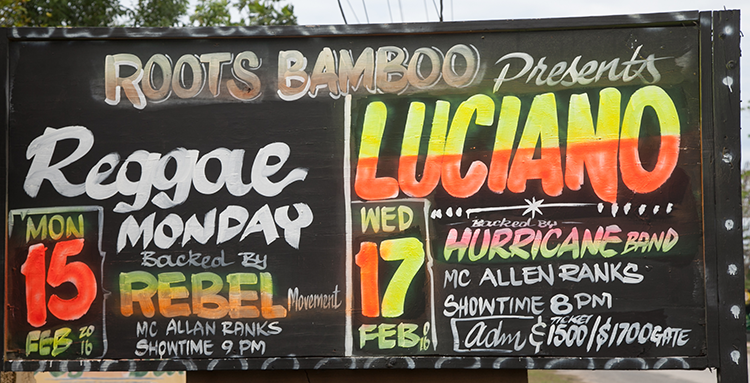 ROOTS BAMBOO Presents
Reggae
MONDAY
MON
15
FEB 2016
Backed By
REBEL Movement
MC ALLAN RANKS
SHOWTIME 9 PM
LUCIANO
WED
17
FEB 16
Backed By
HURRICANE BAND
MC ALLEN RANKS
SHOWTIME 8 PM
adm TICKET $1500/$1700 GATE